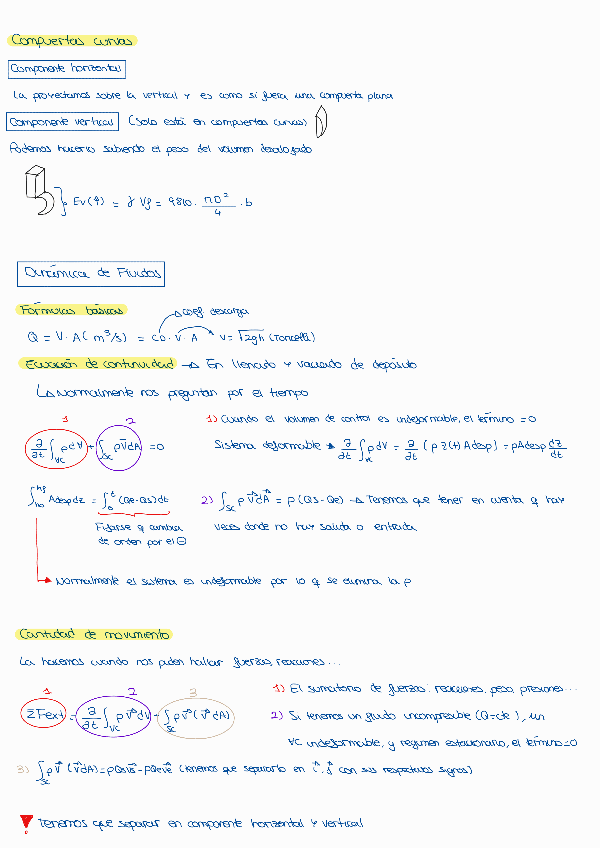 Compuertas curvas
Componente horizontal
La proyectamos sobre la vertical y es como si fuera una compuerta plana
Componente vertical (Solo está en compuertas curvas)
Podemos hacerlo sabiendo el peso del volumen desalojado
Ev(q) = γ Vf = 9810 · πD²/4 · b
Dinámica de Fluidos
Fórmulas básicas
coef. descarga
Q = V · A (m³/s) = CD · V · A V = √2gh (Torricelli)
Ecuación de continuidad → En llenado y vaciado de depósito
↳ Normalmente nos preguntan por el tiempo
1 2 1) Cuando el volumen de control es indeformable, el término = 0
∂/∂t ∫VC ρdV + ∫SC ρV̄dA = 0 Sistema deformable → ∂/∂t ∫VC ρdV = ∂/∂t (ρ z(t) Adesp) = ρAdesp dz/dt
∫h0^hf Adesp dz = ∫0^t (Qe-Qs)dt 2) ∫SC ρV⃗dA⃗ = ρ(Qs - Qe) → Tenemos que tener en cuenta q hay
Fijarse q cambia veces donde no hay salida o entrada
de orden por el ⊖
Normalmente el sistema es indeformable por lo q se elimina la ρ
Cantidad de movimiento
La hacemos cuando nos piden hallar fuerzas, reacciones ...
1 2 3 1) El sumatorio de fuerzas: reacciones, peso, presiones...
ΣFext = ∂/∂t ∫VC ρV⃗dV - ∫SC ρV⃗(V⃗dA) 2) Si tenemos un fluido incompresible (Q=cte), un
VC indeformable, y regimen estacionario, el término=0
3) ∫SC ρV⃗(V⃗dA) = ρQsV⃗s - ρQeV⃗e (tenemos que separarlo en i⃗, j⃗ con sus respectivos signos)
! Tenemos que separar en componente horizontal y vertical